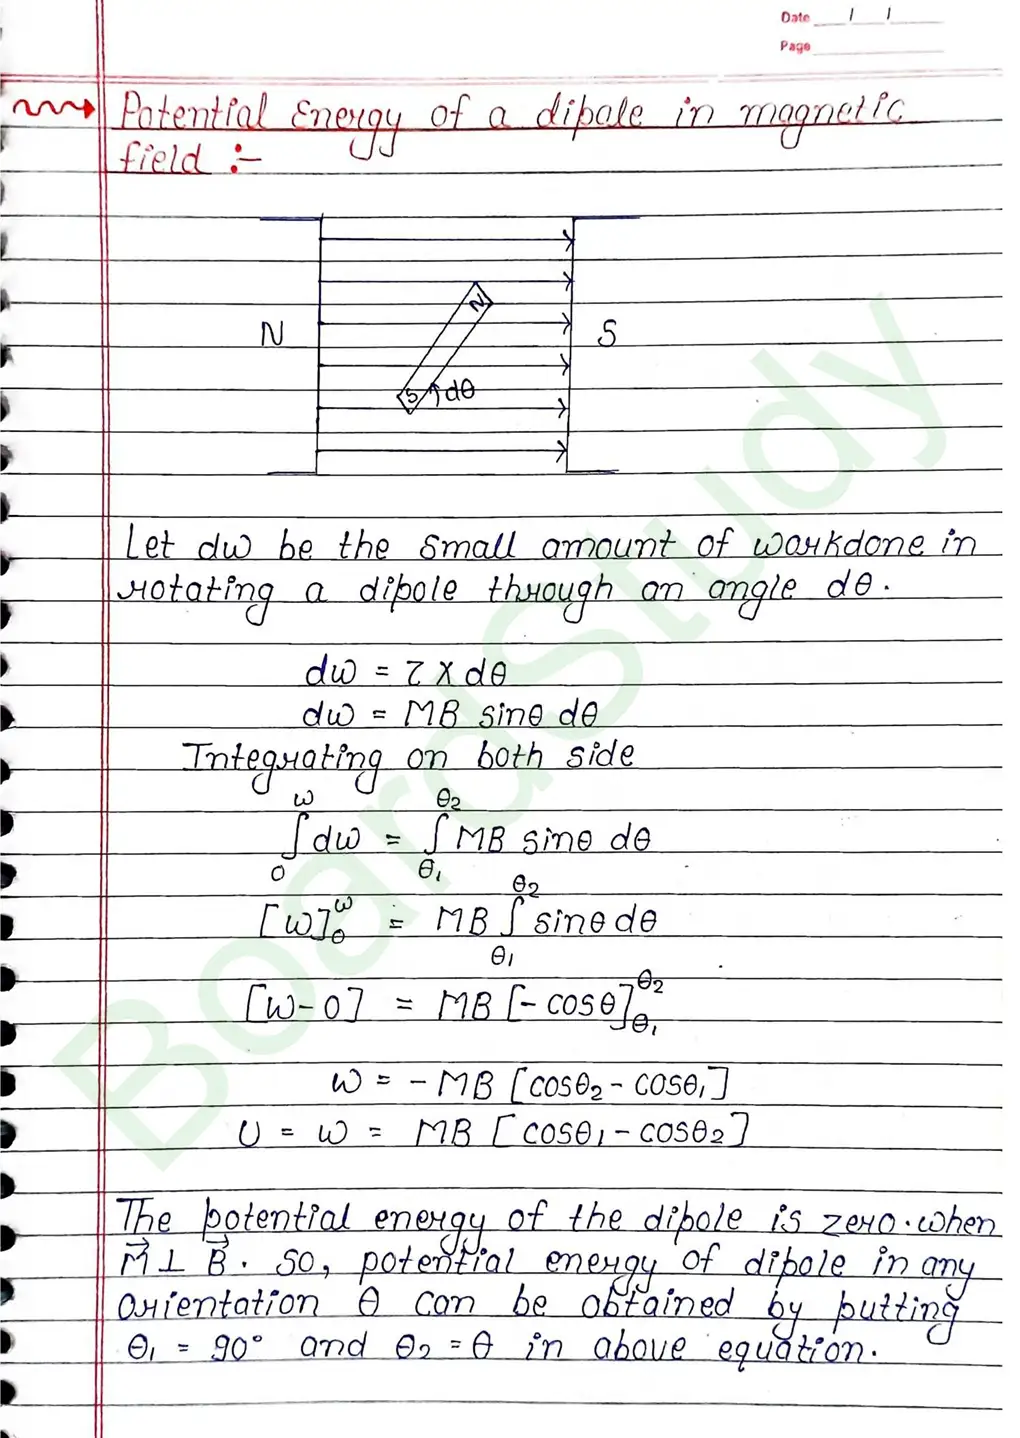 Date / /
Page
Potential Energy of a dipole in magnetic
field :-
N S
N
S dθ
Let dw be the small amount of workdone in
rotating a dipole through an angle dθ.
dw = τ × dθ
dw = MB sinθ dθ
Integrating on both side
∫₀ʷ dw = ∫θ₁^θ₂ MB sinθ dθ
[w]θ^w = MB ∫θ₁^θ₂ sinθ dθ
[w-0] = MB [-cosθ]θ₁^θ₂
w = -MB [cosθ₂ - cosθ₁]
U = w = MB [cosθ₁ - cosθ₂]
The potential energy of the dipole is zero. when
M⃗ ⊥ B⃗. So, potential energy of dipole in any
orientation θ can be obtained by putting
θ₁ = 90° and θ₂ = θ in above equation.
BoardStudy